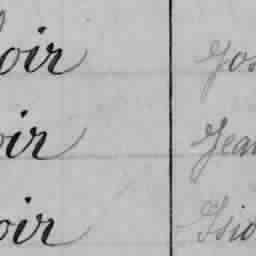 oir Jos
oir Jean
oir Isid